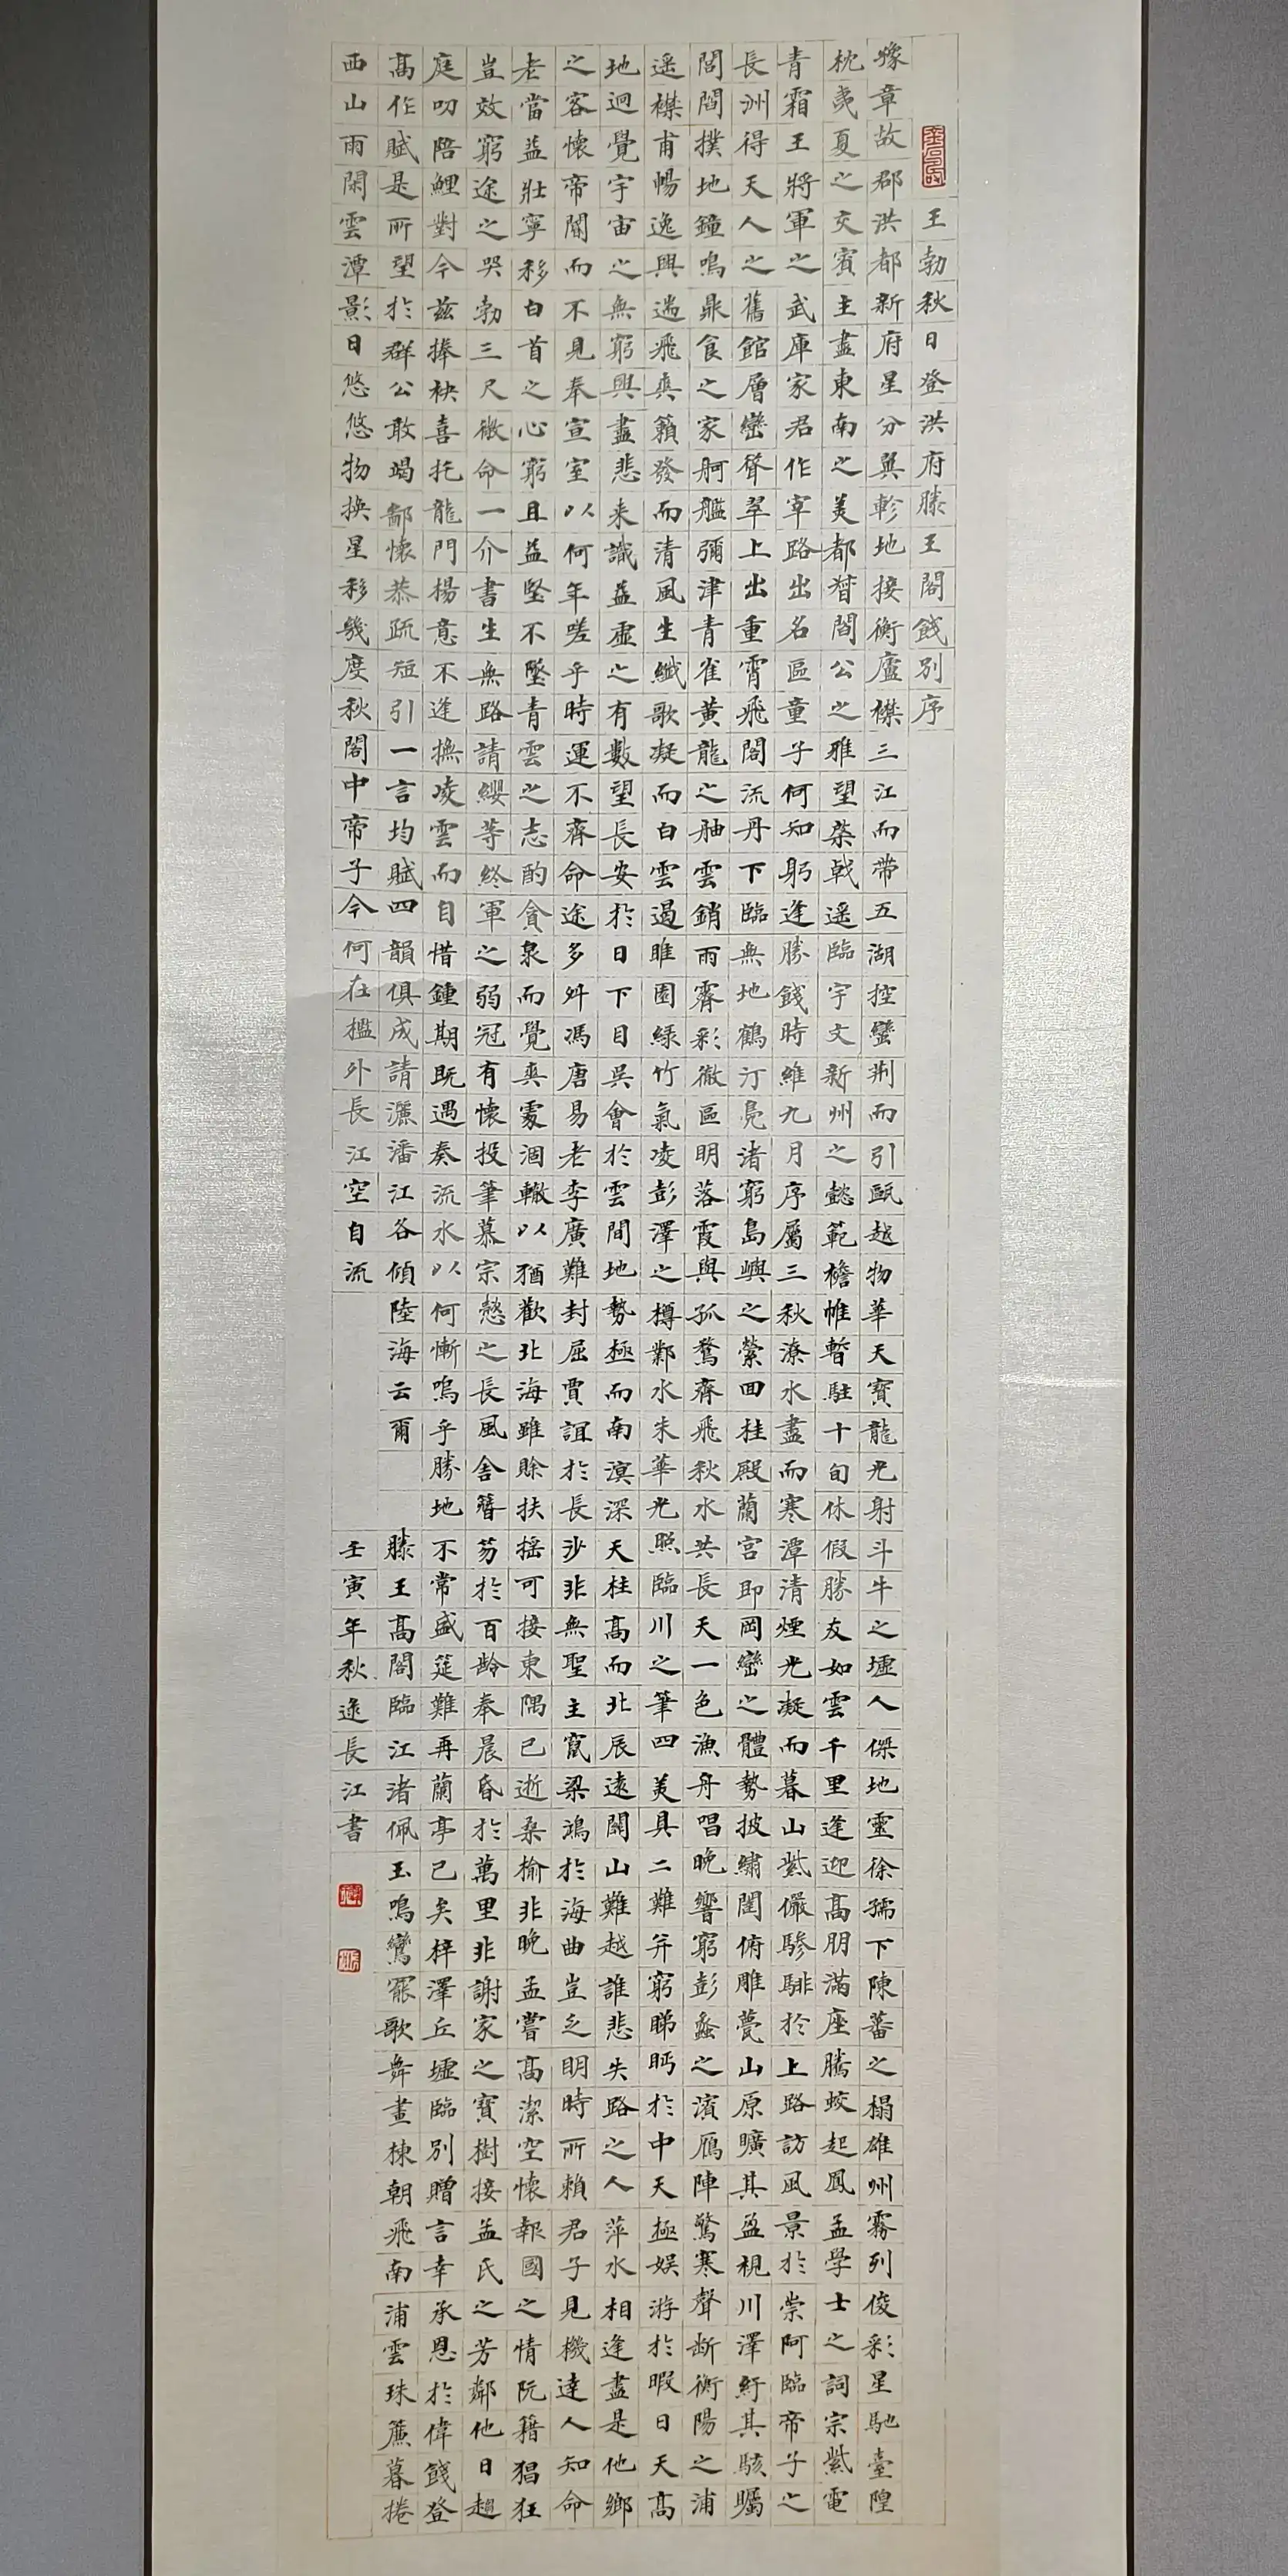 王勃秋日登洪府滕王閣餞別序
豫章故郡洪都新府星分翼軫地接衡廬襟三江而帶五湖控蠻荊而引甌越物華天寶龍光射斗牛之墟人傑地靈徐孺下陳蕃之榻雄州霧列俊彩星馳臺隍
枕夷夏之交賓主盡東南之美都督閻公之雅望棨戟遙臨宇文新州之懿範襜帷暫駐十旬休假勝友如雲千里逢迎高朋滿座騰蛟起鳳孟學士之詞宗紫電
青霜王將軍之武庫家君作宰路出名區童子何知躬逢勝餞時維九月序屬三秋潦水盡而寒潭清煙光凝而暮山紫儼驂騑於上路訪風景於崇阿臨帝子之
長洲得天人之舊館層巒聳翠上出重霄飛閣流丹下臨無地鶴汀鳧渚窮島嶼之縈回桂殿蘭宮即岡巒之體勢披繡闥俯雕甍山原曠其盈視川澤紆其駭矚
閭閻撲地鐘鳴鼎食之家舸艦彌津青雀黃龍之舳雲銷雨霽彩徹區明落霞與孤鶩齊飛秋水共長天一色漁舟唱晚響窮彭蠡之濱雁陣驚寒聲斷衡陽之浦
遙襟甫暢逸興遄飛爽籟發而清風生纖歌凝而白雲遏睢園綠竹氣凌彭澤之樽鄴水朱華光照臨川之筆四美具二難并窮睇眄於中天極娛游於暇日天高
地迥覺宇宙之無窮興盡悲來識盈虛之有數望長安於日下目吳會於雲間地勢極而南溟深天柱高而北辰遠關山難越誰悲失路之人萍水相逢盡是他鄉
之客懷帝閽而不見奉宣室以何年嗟乎時運不齊命途多舛馮唐易老李廣難封屈賈誼於長沙非無聖主竄梁鴻於海曲豈乏明時所賴君子見機達人知命
老當益壯寧移白首之心窮且益堅不墜青雲之志酌貪泉而覺爽處涸轍以猶歡北海雖賒扶搖可接東隅已逝桑榆非晚孟嘗高潔空懷報國之情阮籍猖狂
豈效窮途之哭勃三尺微命一介書生無路請纓等終軍之弱冠有懷投筆慕宗愨之長風舍簪笏於百齡奉晨昏於萬里非謝家之寶樹接孟氏之芳鄰他日趨
庭叨陪鯉對今茲捧袂喜托龍門楊意不逢撫凌雲而自惜鍾期既遇奏流水以何慚嗚乎勝地不常盛筵難再蘭亭已矣梓澤丘墟臨別贈言幸承恩於偉餞登
高作賦是所望於群公敢竭鄙懷恭疏短引一言均賦四韻俱成請灑潘江各傾陸海云爾 滕王高閣臨江渚佩玉鳴鸞罷歌舞畫棟朝飛南浦雲珠簾暮捲
西山雨閑雲潭影日悠悠物換星移幾度秋閣中帝子今何在檻外長江空自流 壬寅年秋逯長江書